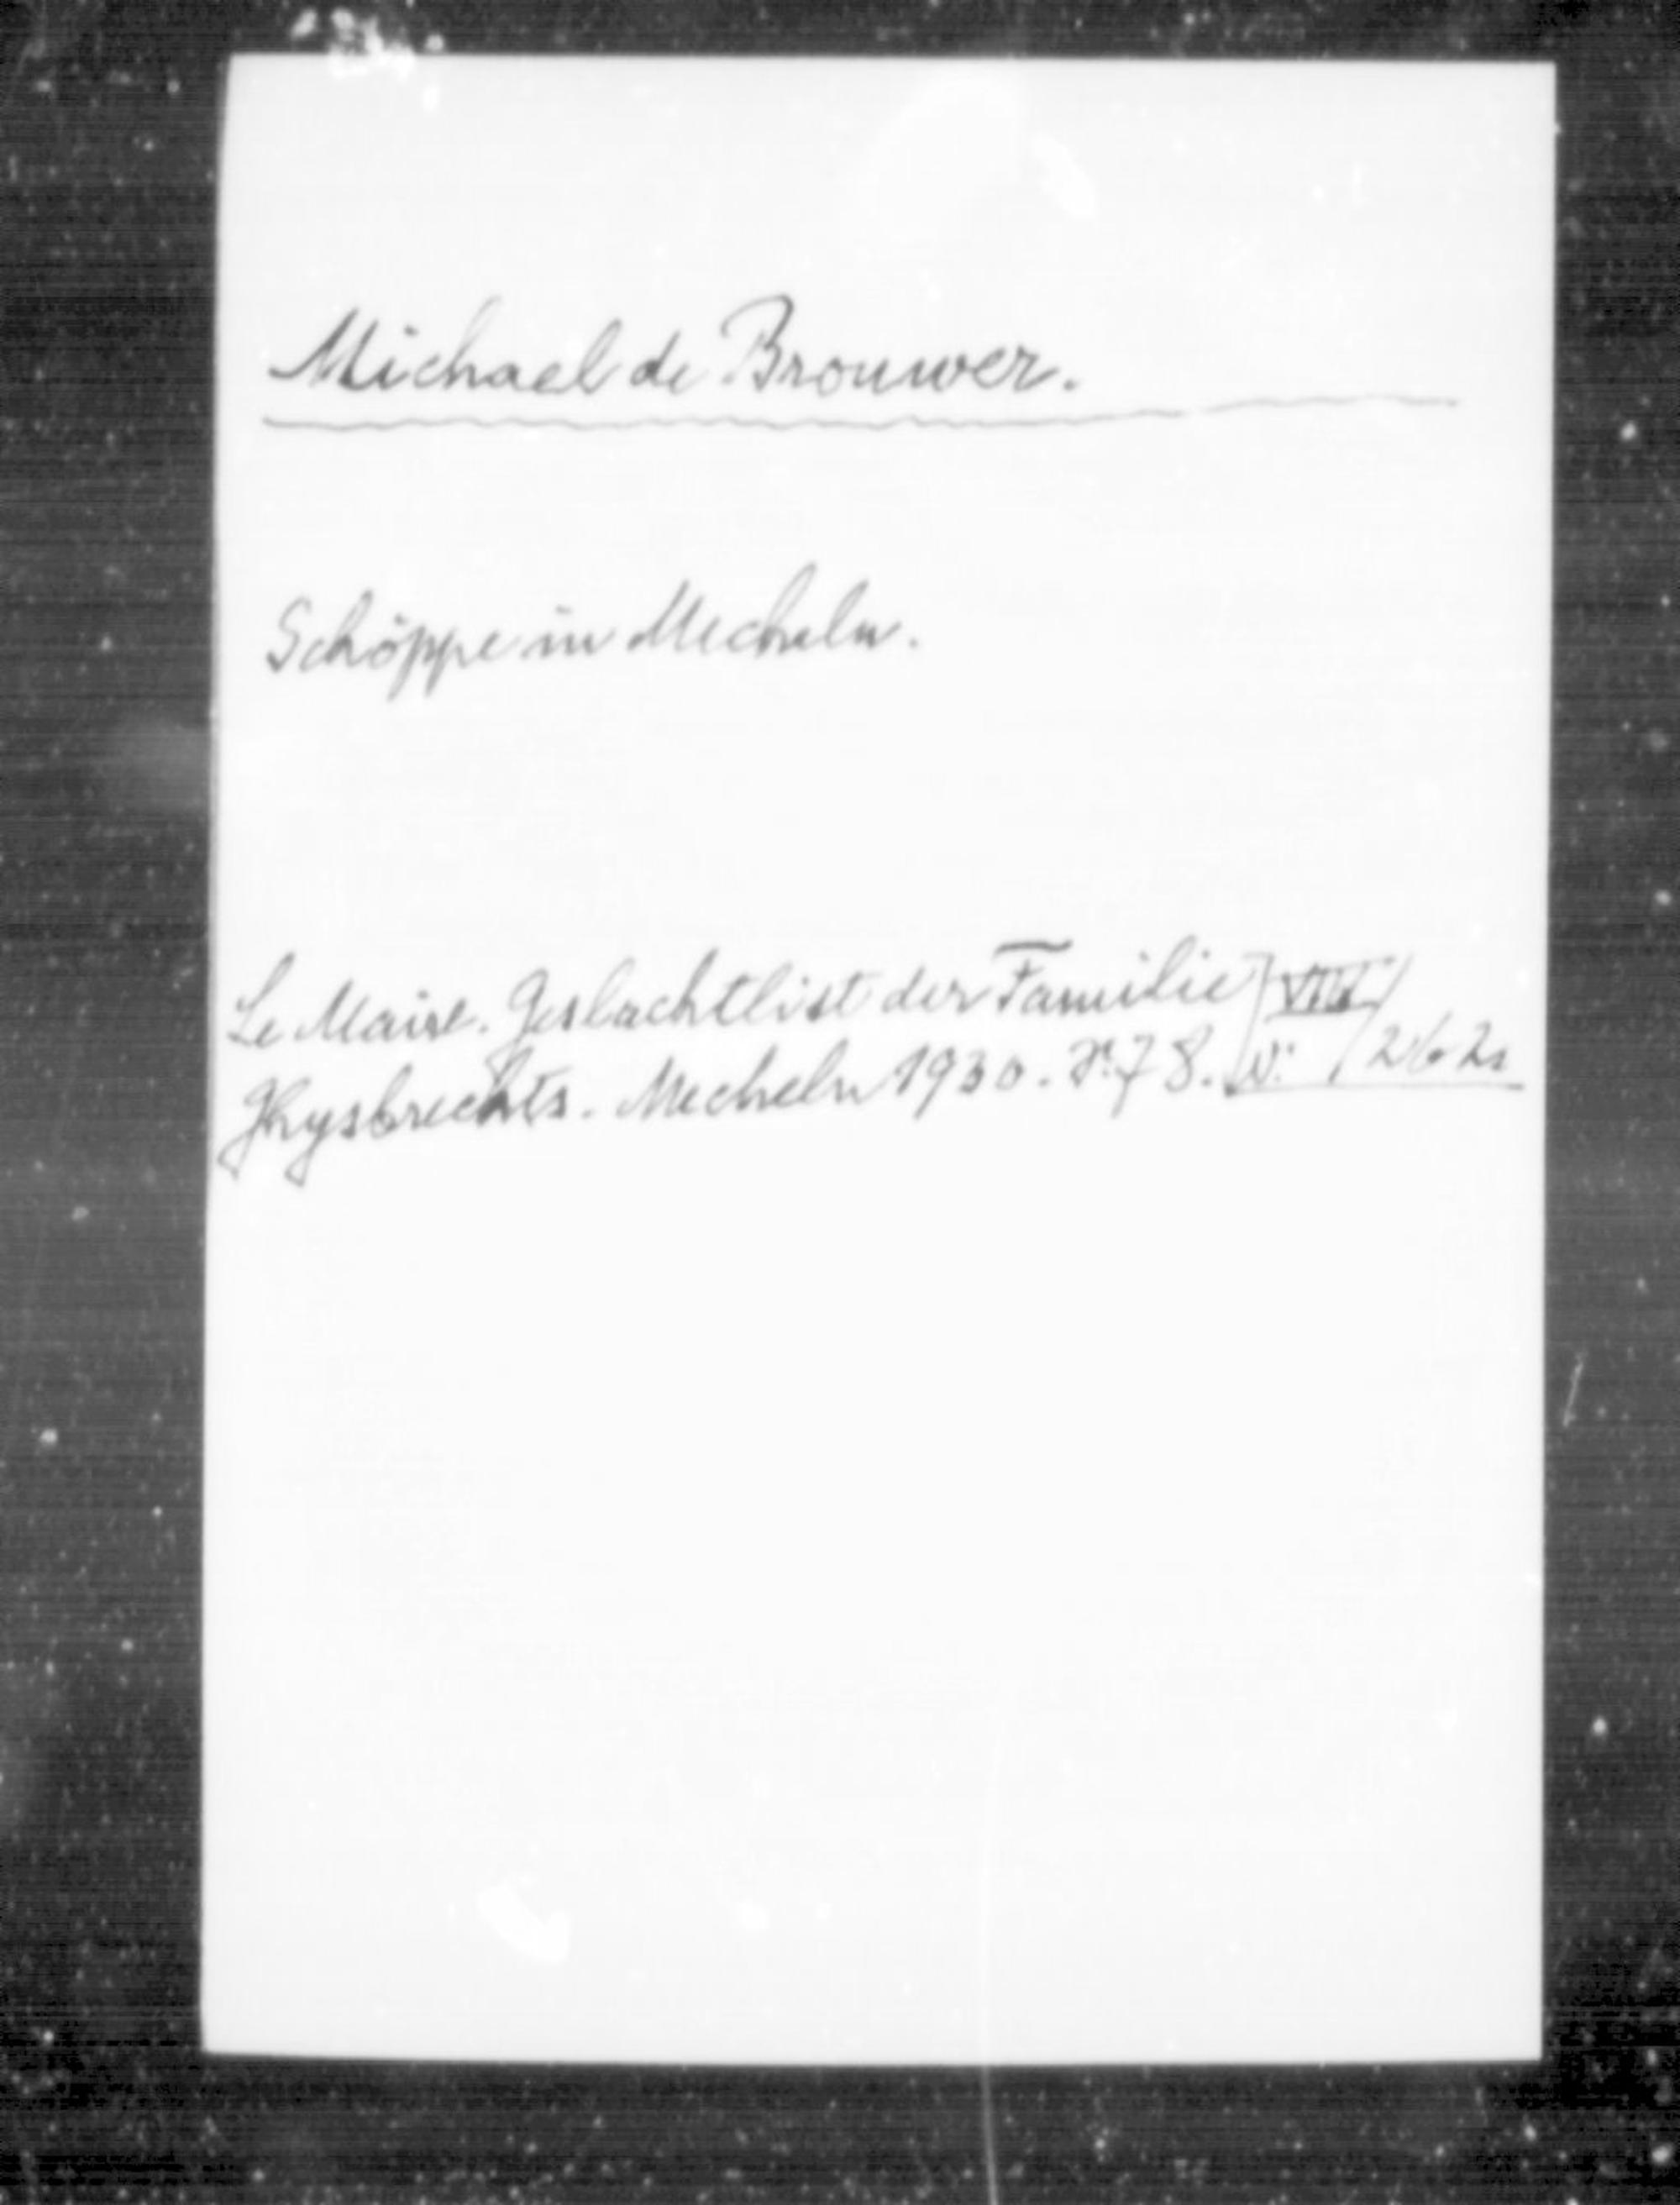 Michael de Brouwer.
Schöppe in Mecheln.
Le Maire. Geslachtlist der Familie
Ghysbrechts. Mecheln 1930. S. 78.
VIII
2621